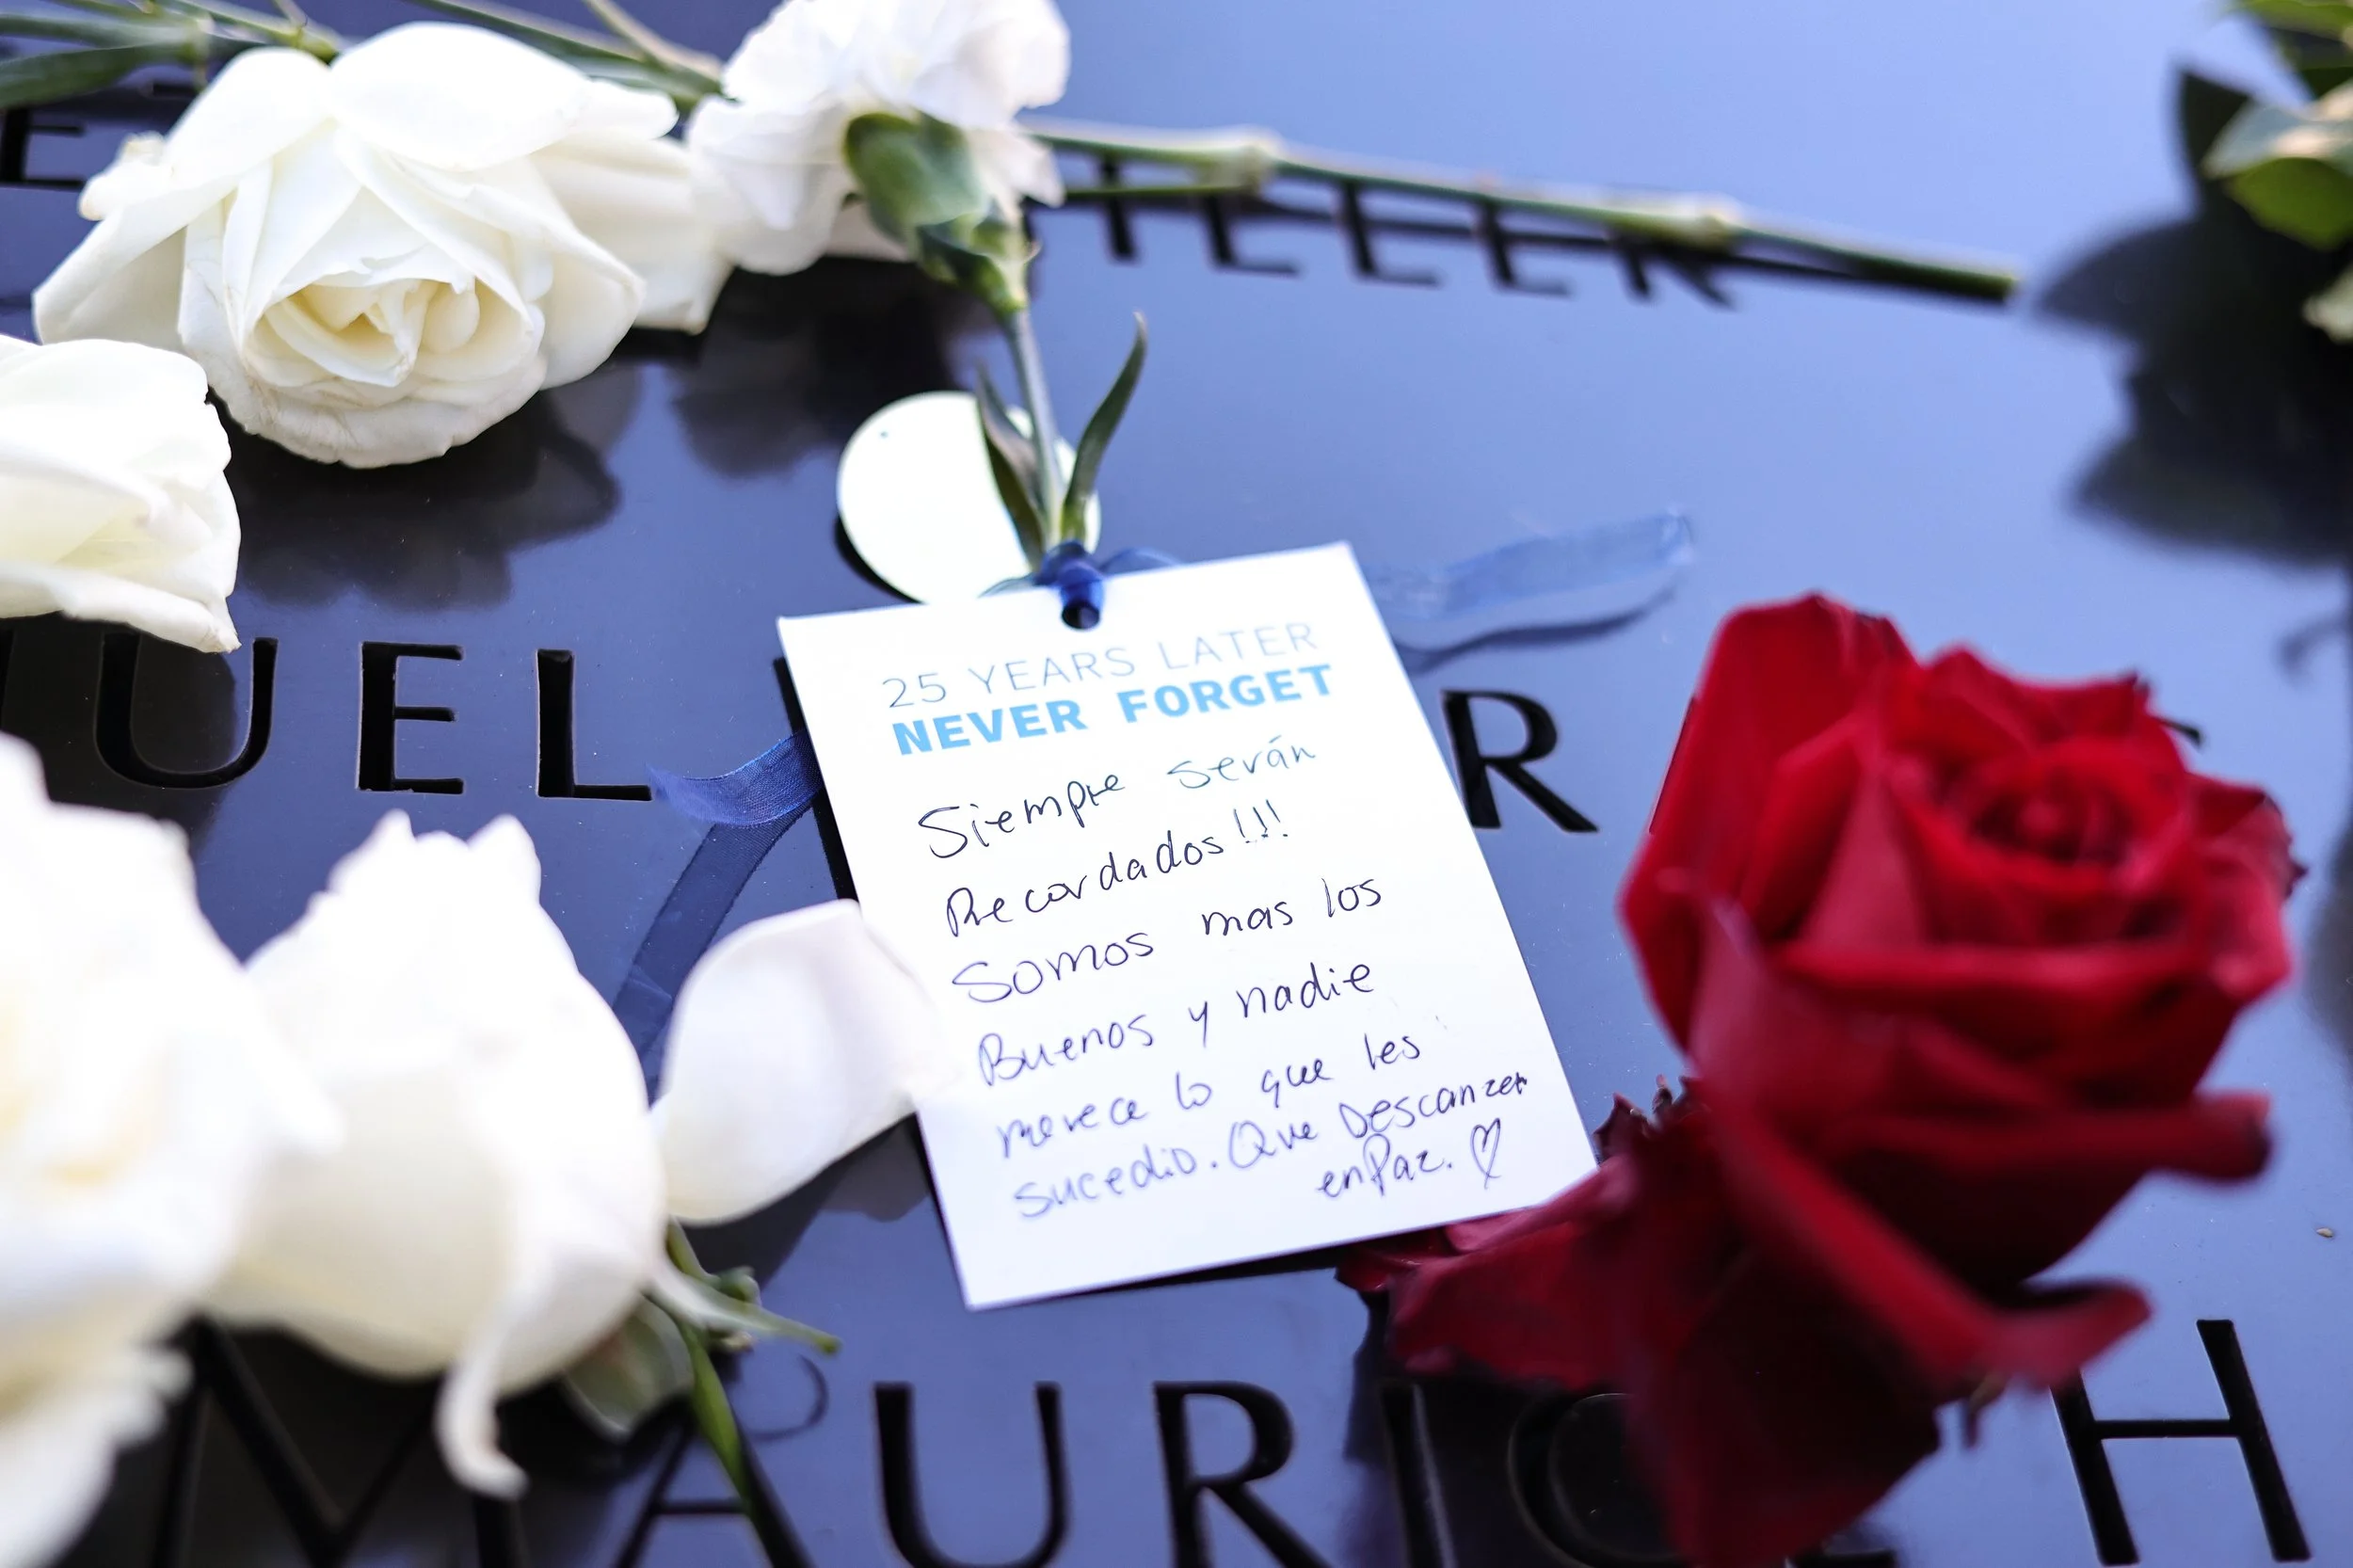 UEL R
25 YEARS LATER
NEVER FORGET
Siempre serán
Recordados!!!
Somos mas los
Buenos y nadie
merece lo que les
sucedio. Que Descanzen
en Paz. ♡
MAURICE H